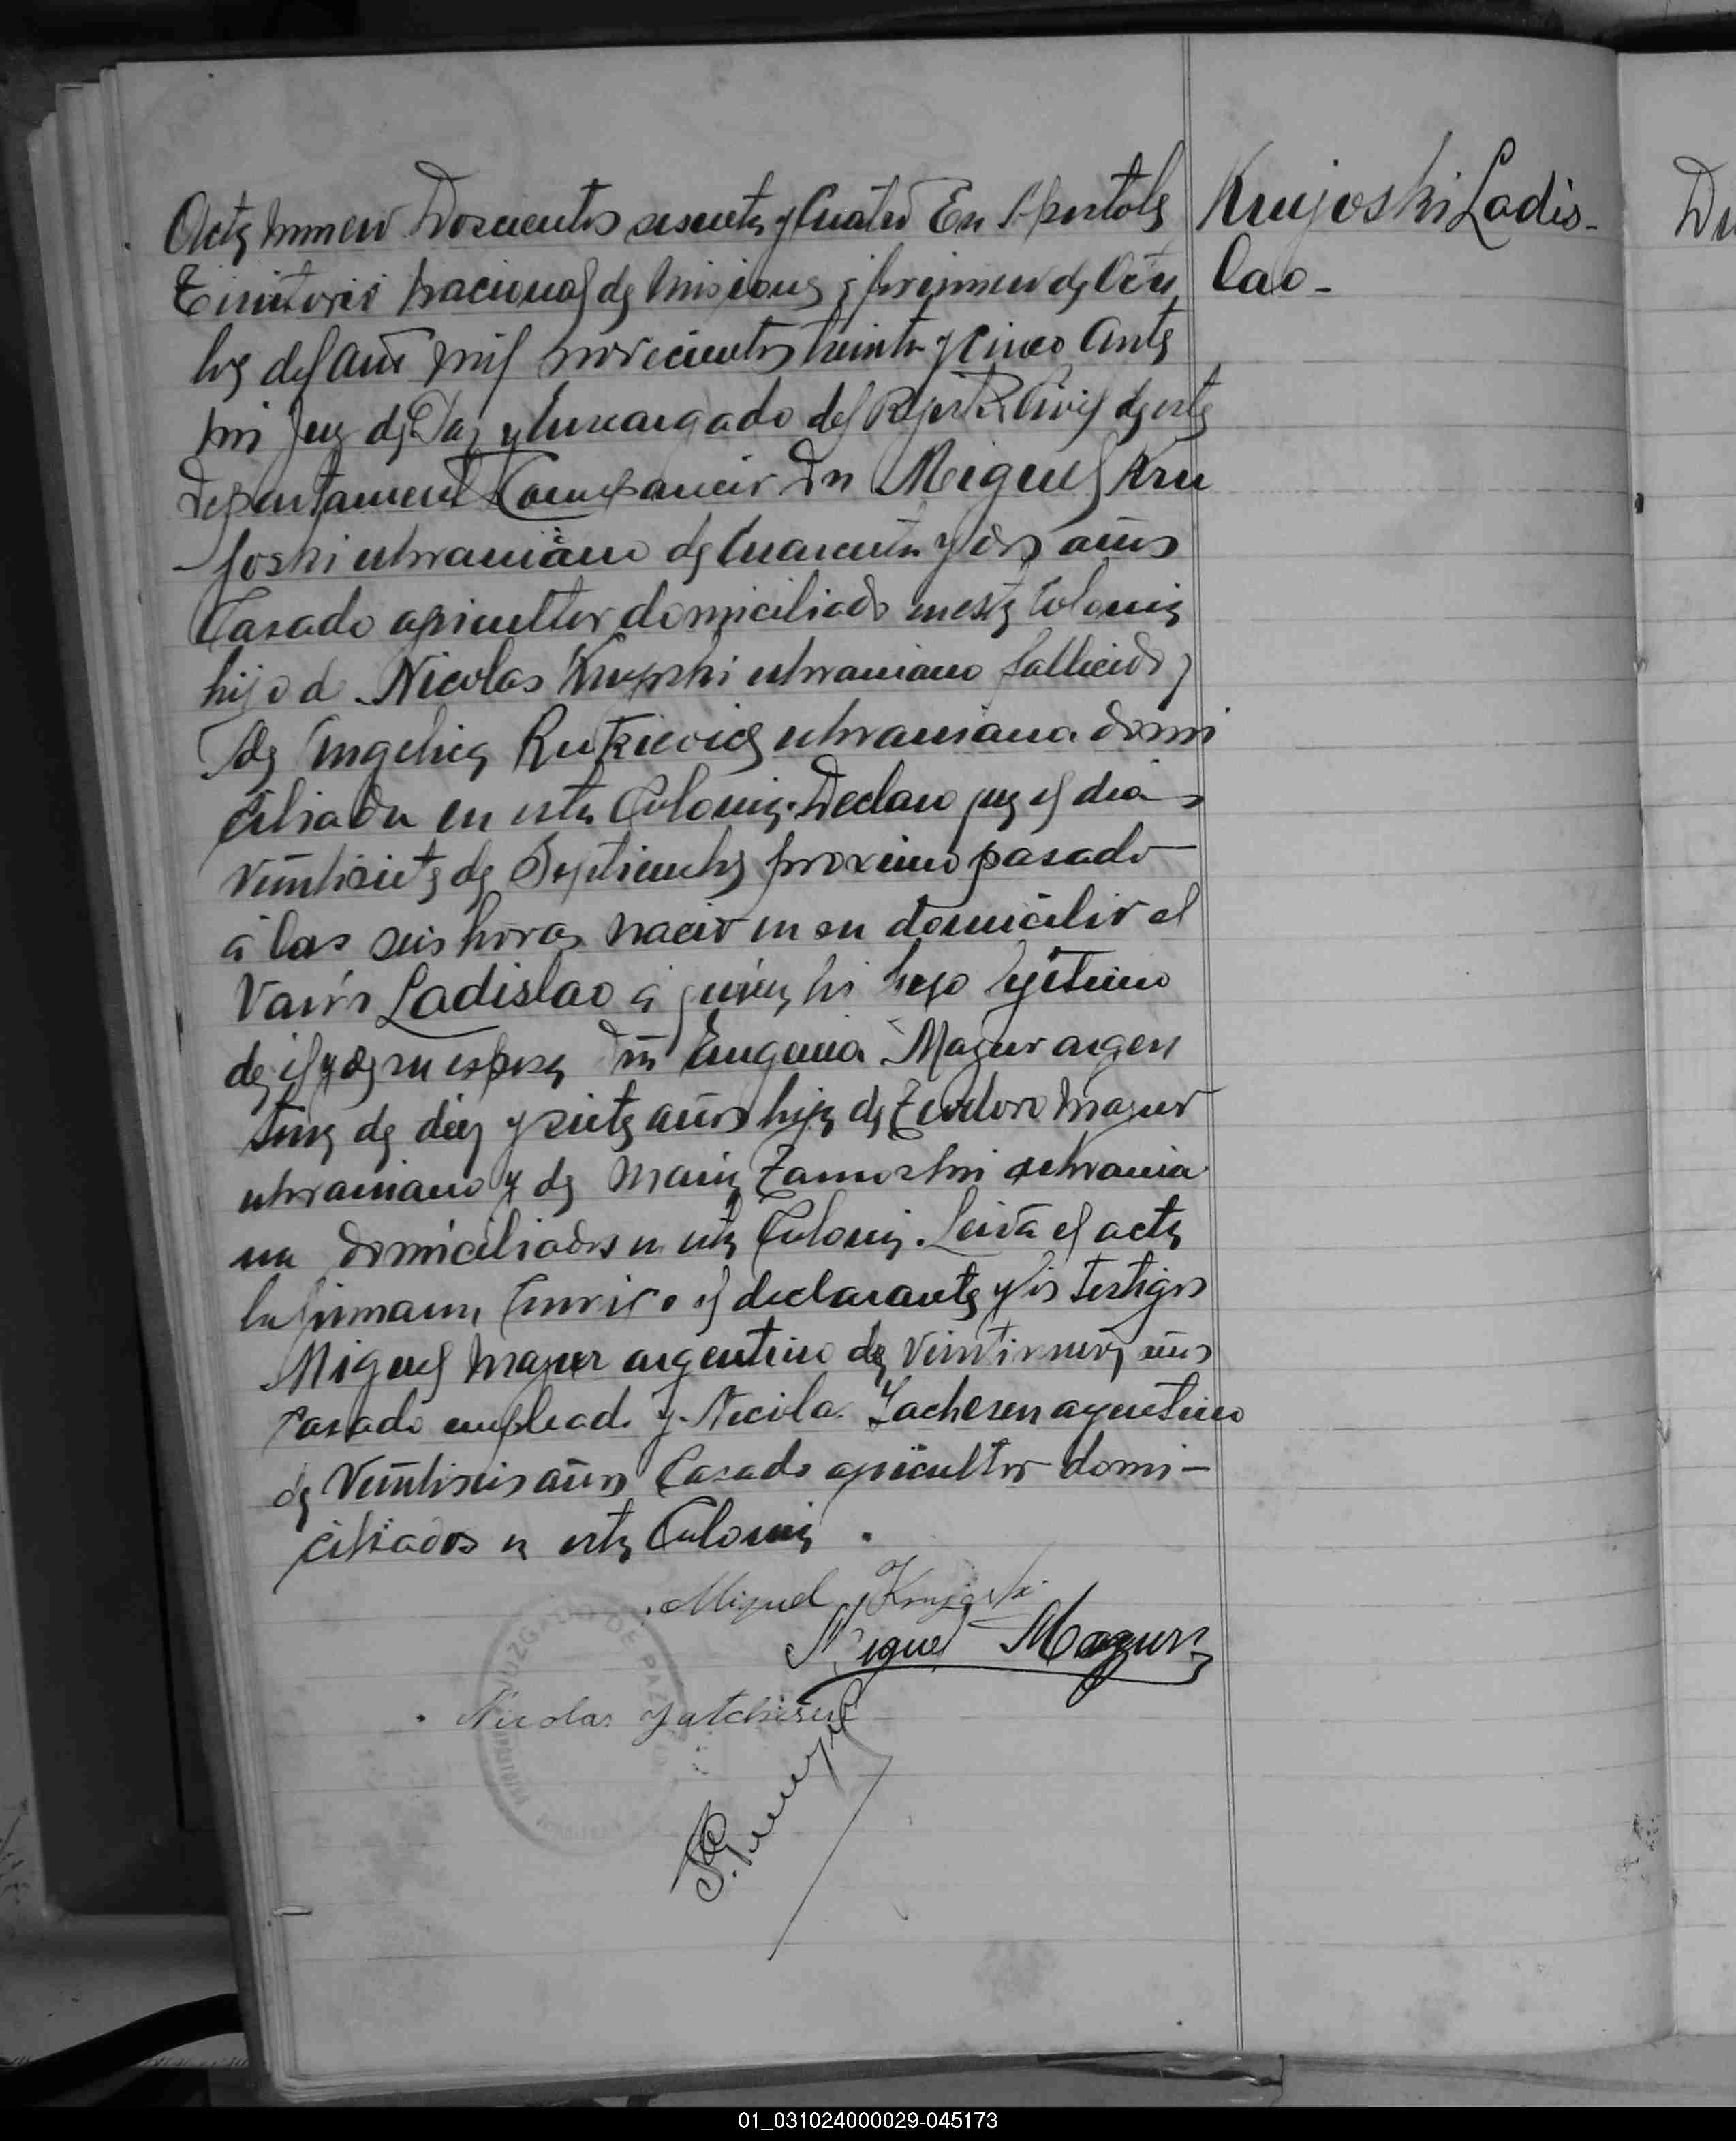 Krujoski Ladis-
lao-
Acta numero Doscientos sesenta y Cuatro En Apostoles
Territorio nacional de Misiones a primero de Octu
bre del año mil novecientos treinta y cinco Ante
mi Juez de Paz y Encargado del Registro Civil de este
Departamento Comparecio Dn Miguel Kru
joski ukraniano de Cuarenta y dos años
Casado agricultor domiciliado en esta Colonia
hijo de Nicolas Krujoski ukraniano fallecido y
de Angelica Rutkievich ukraniana domi
ciliada en esta Colonia. Declaro que el dia
Veintisiete de Septiembre proximo pasado
á las seis horas nacio en su domicilio el
Varón Ladislao á quien, hijo lejitimo
de el y de su esposa Dña Eugenia Mazur argen
tina de diez y siete años hija de Teodoro Mazur
ukraniano y de Maria Zamoski ukrania
na domiciliados en esta Colonia. Leida el acta
la firmaron Conmigo el declarante y los testigos
Miguel Mazur argentino de Veintinueve años
casado empleado y Nicolas Jachesen argentino
de Veintiseis años Casado agricultor domi-
ciliados en esta Colonia.
Miguel Krujoski
Miguel Mazur
Nicolas Jatchesen
JUZGADO DE PAZ